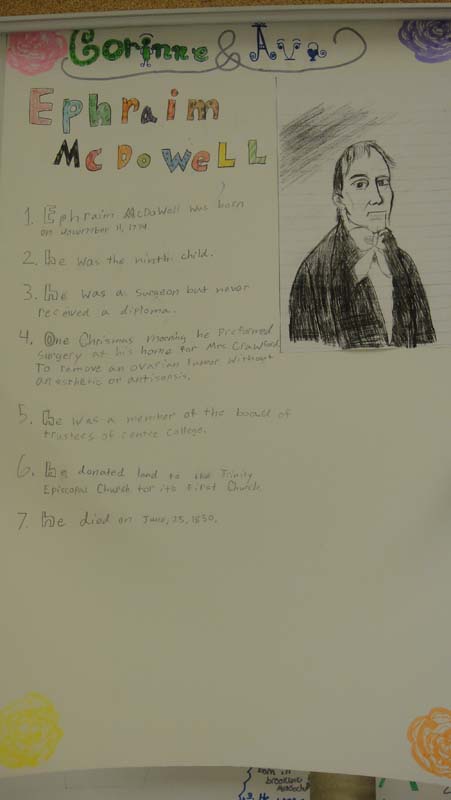 Corinne & Ava
Ephraim
McDowell
1. Ephraim McDowell was born
on November 11, 1774
2. he was the ninth child.
3. he was a surgeon but never
received a diploma.
4. One Chrismas morning he preformed
surgery at his home for Mrs. Crawford
To remove an ovarian tumor without
anesthetic or antisepsis.
5. he was a member of the board of
trusters of centre college.
6. he donated land to the Trinity
Episcopal Church for its First Church.
7. he died on June, 25, 1830.
born in
brookline